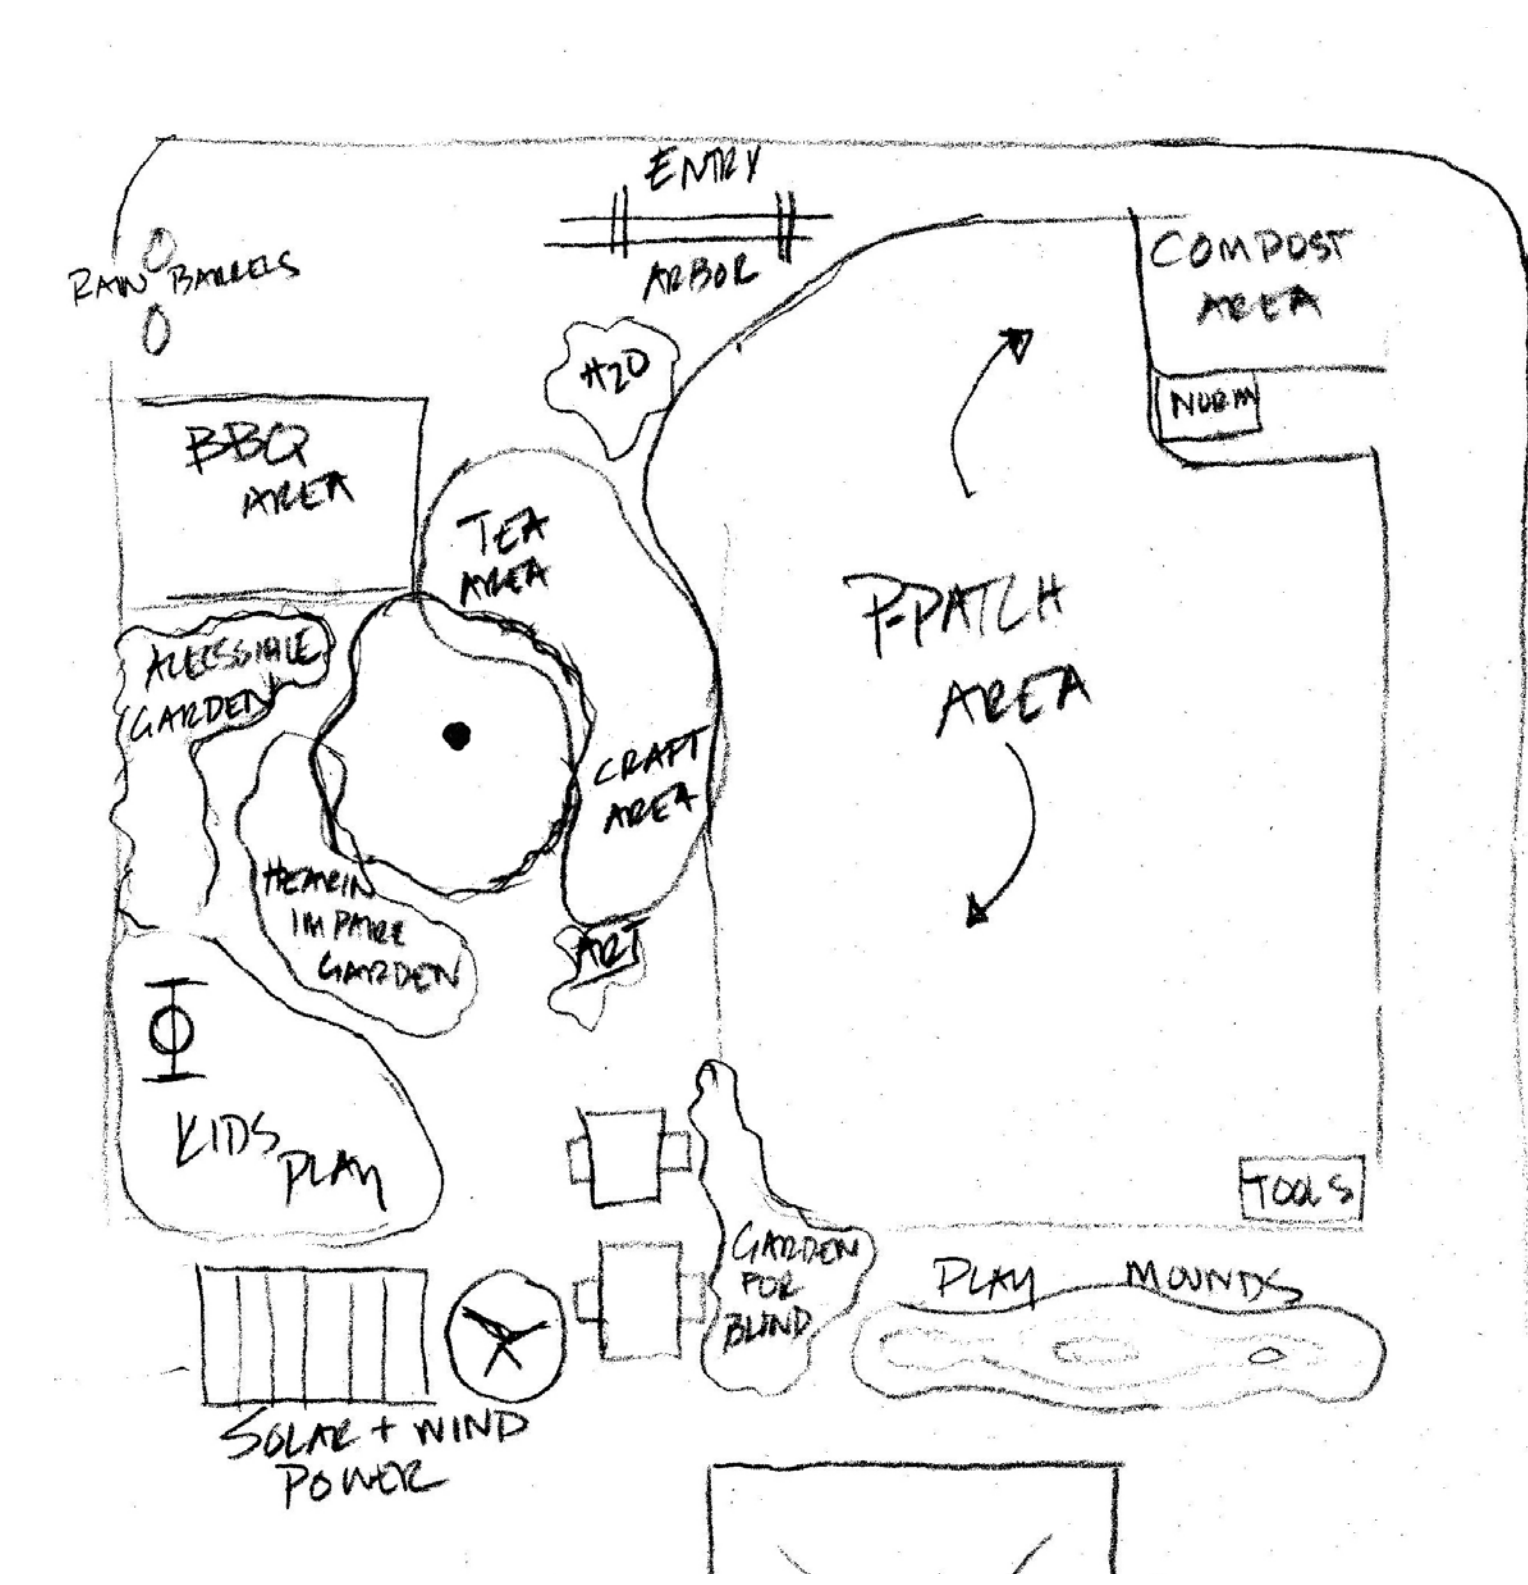 ENTRY
ARBOR
RAIN BARRELS
COMPOST
AREA
H2O
BBQ
AREA
TEA
AREA
P-PATCH
AREA
ACCESSIBLE
GARDEN
CRAFT
AREA
HEARIN
IMPAIRE
GARDEN
ART
KIDS
PLAY
TOOLS
GARDEN
FOR
BLIND
PLAY MOUNDS
SOLAR + WIND
POWER